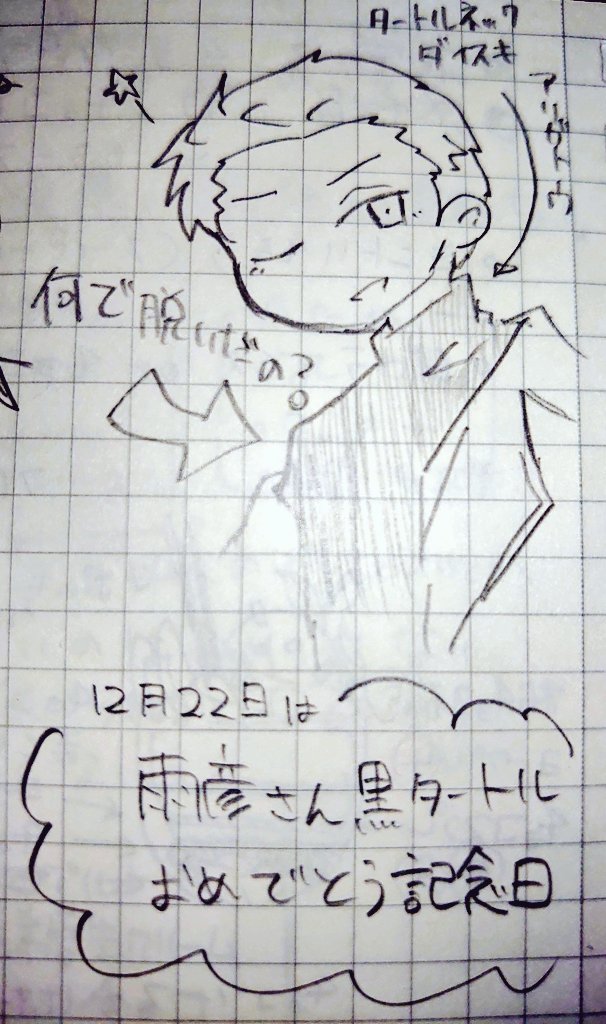 タートルネック
ダイスキ
何で脱いだの?
12月22日は
雨彦さん黒タートル
おめでとう記念日